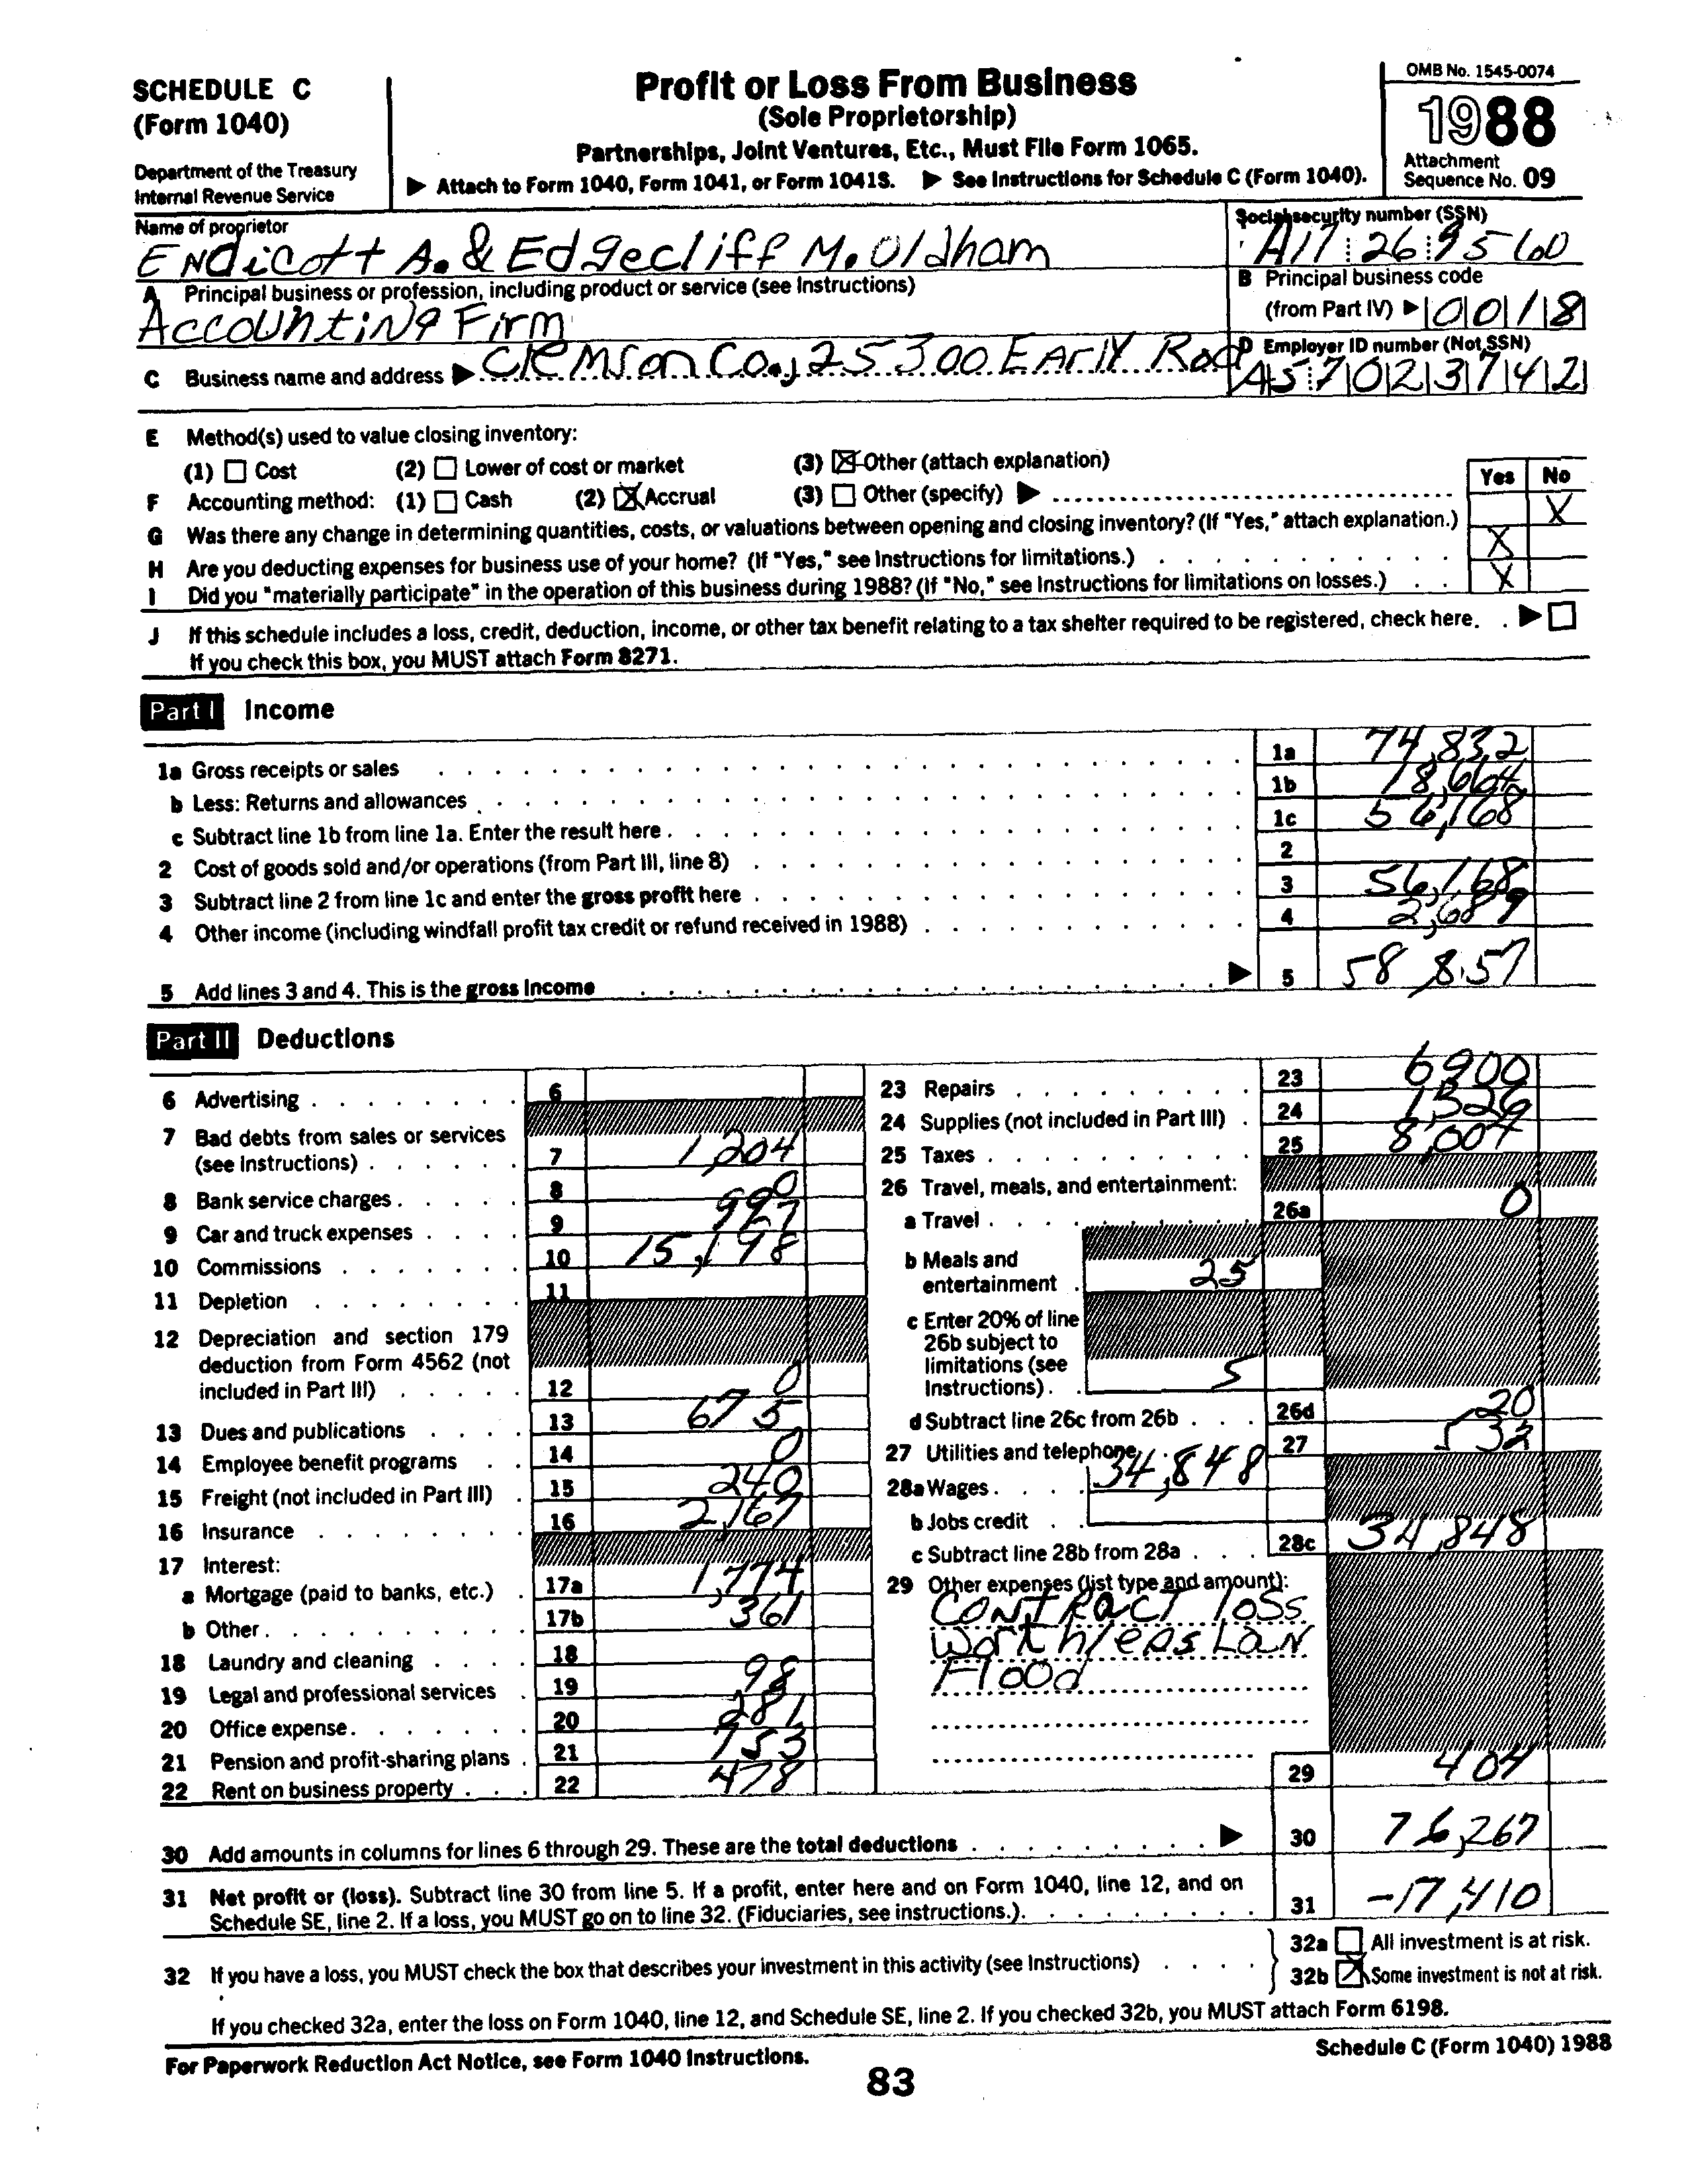 SCHEDULE C
(Form 1040)
Department of the Treasury
Internal Revenue Service
Profit or Loss From Business
(Sole Proprietorship)
Partnerships, Joint Ventures, Etc., Must File Form 1065.
▶ Attach to Form 1040, Form 1041, or Form 1041S. ▶ See Instructions for Schedule C (Form 1040).
OMB No. 1545-0074
1988
Attachment
Sequence No. 09
Name of proprietor
Endicott A. & Edgecliff M. Oldham
Social security number (SSN)
A17 26 9560
A Principal business or profession, including product or service (see Instructions)
Accounting Firm
B Principal business code
(from Part IV) ▶ 0018
C Business name and address ▶ Clemson Co., 25300 Early Rod
D Employer ID number (Not SSN)
A5 7023742
E Method(s) used to value closing inventory:
(1) ☐ Cost (2) ☐ Lower of cost or market (3) ☒ Other (attach explanation)
Yes No
F Accounting method: (1) ☐ Cash (2) ☒ Accrual (3) ☐ Other (specify) ▶
G Was there any change in determining quantities, costs, or valuations between opening and closing inventory? (If "Yes," attach explanation.) X
H Are you deducting expenses for business use of your home? (If "Yes," see Instructions for limitations.) X
I Did you "materially participate" in the operation of this business during 1988? (If "No," see Instructions for limitations on losses.) X
J If this schedule includes a loss, credit, deduction, income, or other tax benefit relating to a tax shelter required to be registered, check here. ▶ ☐
If you check this box, you MUST attach Form 8271.
Part I Income
1a Gross receipts or sales 1a 74,832
b Less: Returns and allowances 1b 18,664
c Subtract line 1b from line 1a. Enter the result here 1c 56,168
2 Cost of goods sold and/or operations (from Part III, line 8) 2
3 Subtract line 2 from line 1c and enter the gross profit here 3 56,168
4 Other income (including windfall profit tax credit or refund received in 1988) 4 2,689
5 Add lines 3 and 4. This is the gross income ▶ 5 58,857
Part II Deductions
6 Advertising 6
7 Bad debts from sales or services
(see Instructions) 7 1,204
8 Bank service charges 8 0
9 Car and truck expenses 9 997
10 Commissions 10 15,198
11 Depletion 11
12 Depreciation and section 179
deduction from Form 4562 (not
included in Part III) 12 0
13 Dues and publications 13 675
14 Employee benefit programs 14 0
15 Freight (not included in Part III) 15 240
16 Insurance 16 2,167
17 Interest:
a Mortgage (paid to banks, etc.) 17a 1,774
b Other 17b 361
18 Laundry and cleaning 18
19 Legal and professional services 19 98
20 Office expense 20 281
21 Pension and profit-sharing plans 21 753
22 Rent on business property 22 478
23 Repairs 23 6900
24 Supplies (not included in Part III) 24 1326
25 Taxes 25 8,007
26 Travel, meals, and entertainment:
a Travel 26a 0
b Meals and
entertainment 25
c Enter 20% of line
26b subject to
limitations (see
Instructions) 5
d Subtract line 26c from 26b 26d 20
27 Utilities and telephone 27 532
28a Wages 34,848
b Jobs credit
c Subtract line 28b from 28a 28c 34,848
29 Other expenses (list type and amount):
Contract loss
Worthless Lan
Flood
29 404
30 Add amounts in columns for lines 6 through 29. These are the total deductions ▶ 30 76,267
31 Net profit or (loss). Subtract line 30 from line 5. If a profit, enter here and on Form 1040, line 12, and on
Schedule SE, line 2. If a loss, you MUST go on to line 32. (Fiduciaries, see instructions.) 31 -17,410
32 If you have a loss, you MUST check the box that describes your investment in this activity (see Instructions)
32a ☐ All investment is at risk.
32b ☒ Some investment is not at risk.
If you checked 32a, enter the loss on Form 1040, line 12, and Schedule SE, line 2. If you checked 32b, you MUST attach Form 6198.
For Paperwork Reduction Act Notice, see Form 1040 Instructions.
Schedule C (Form 1040) 1988
83